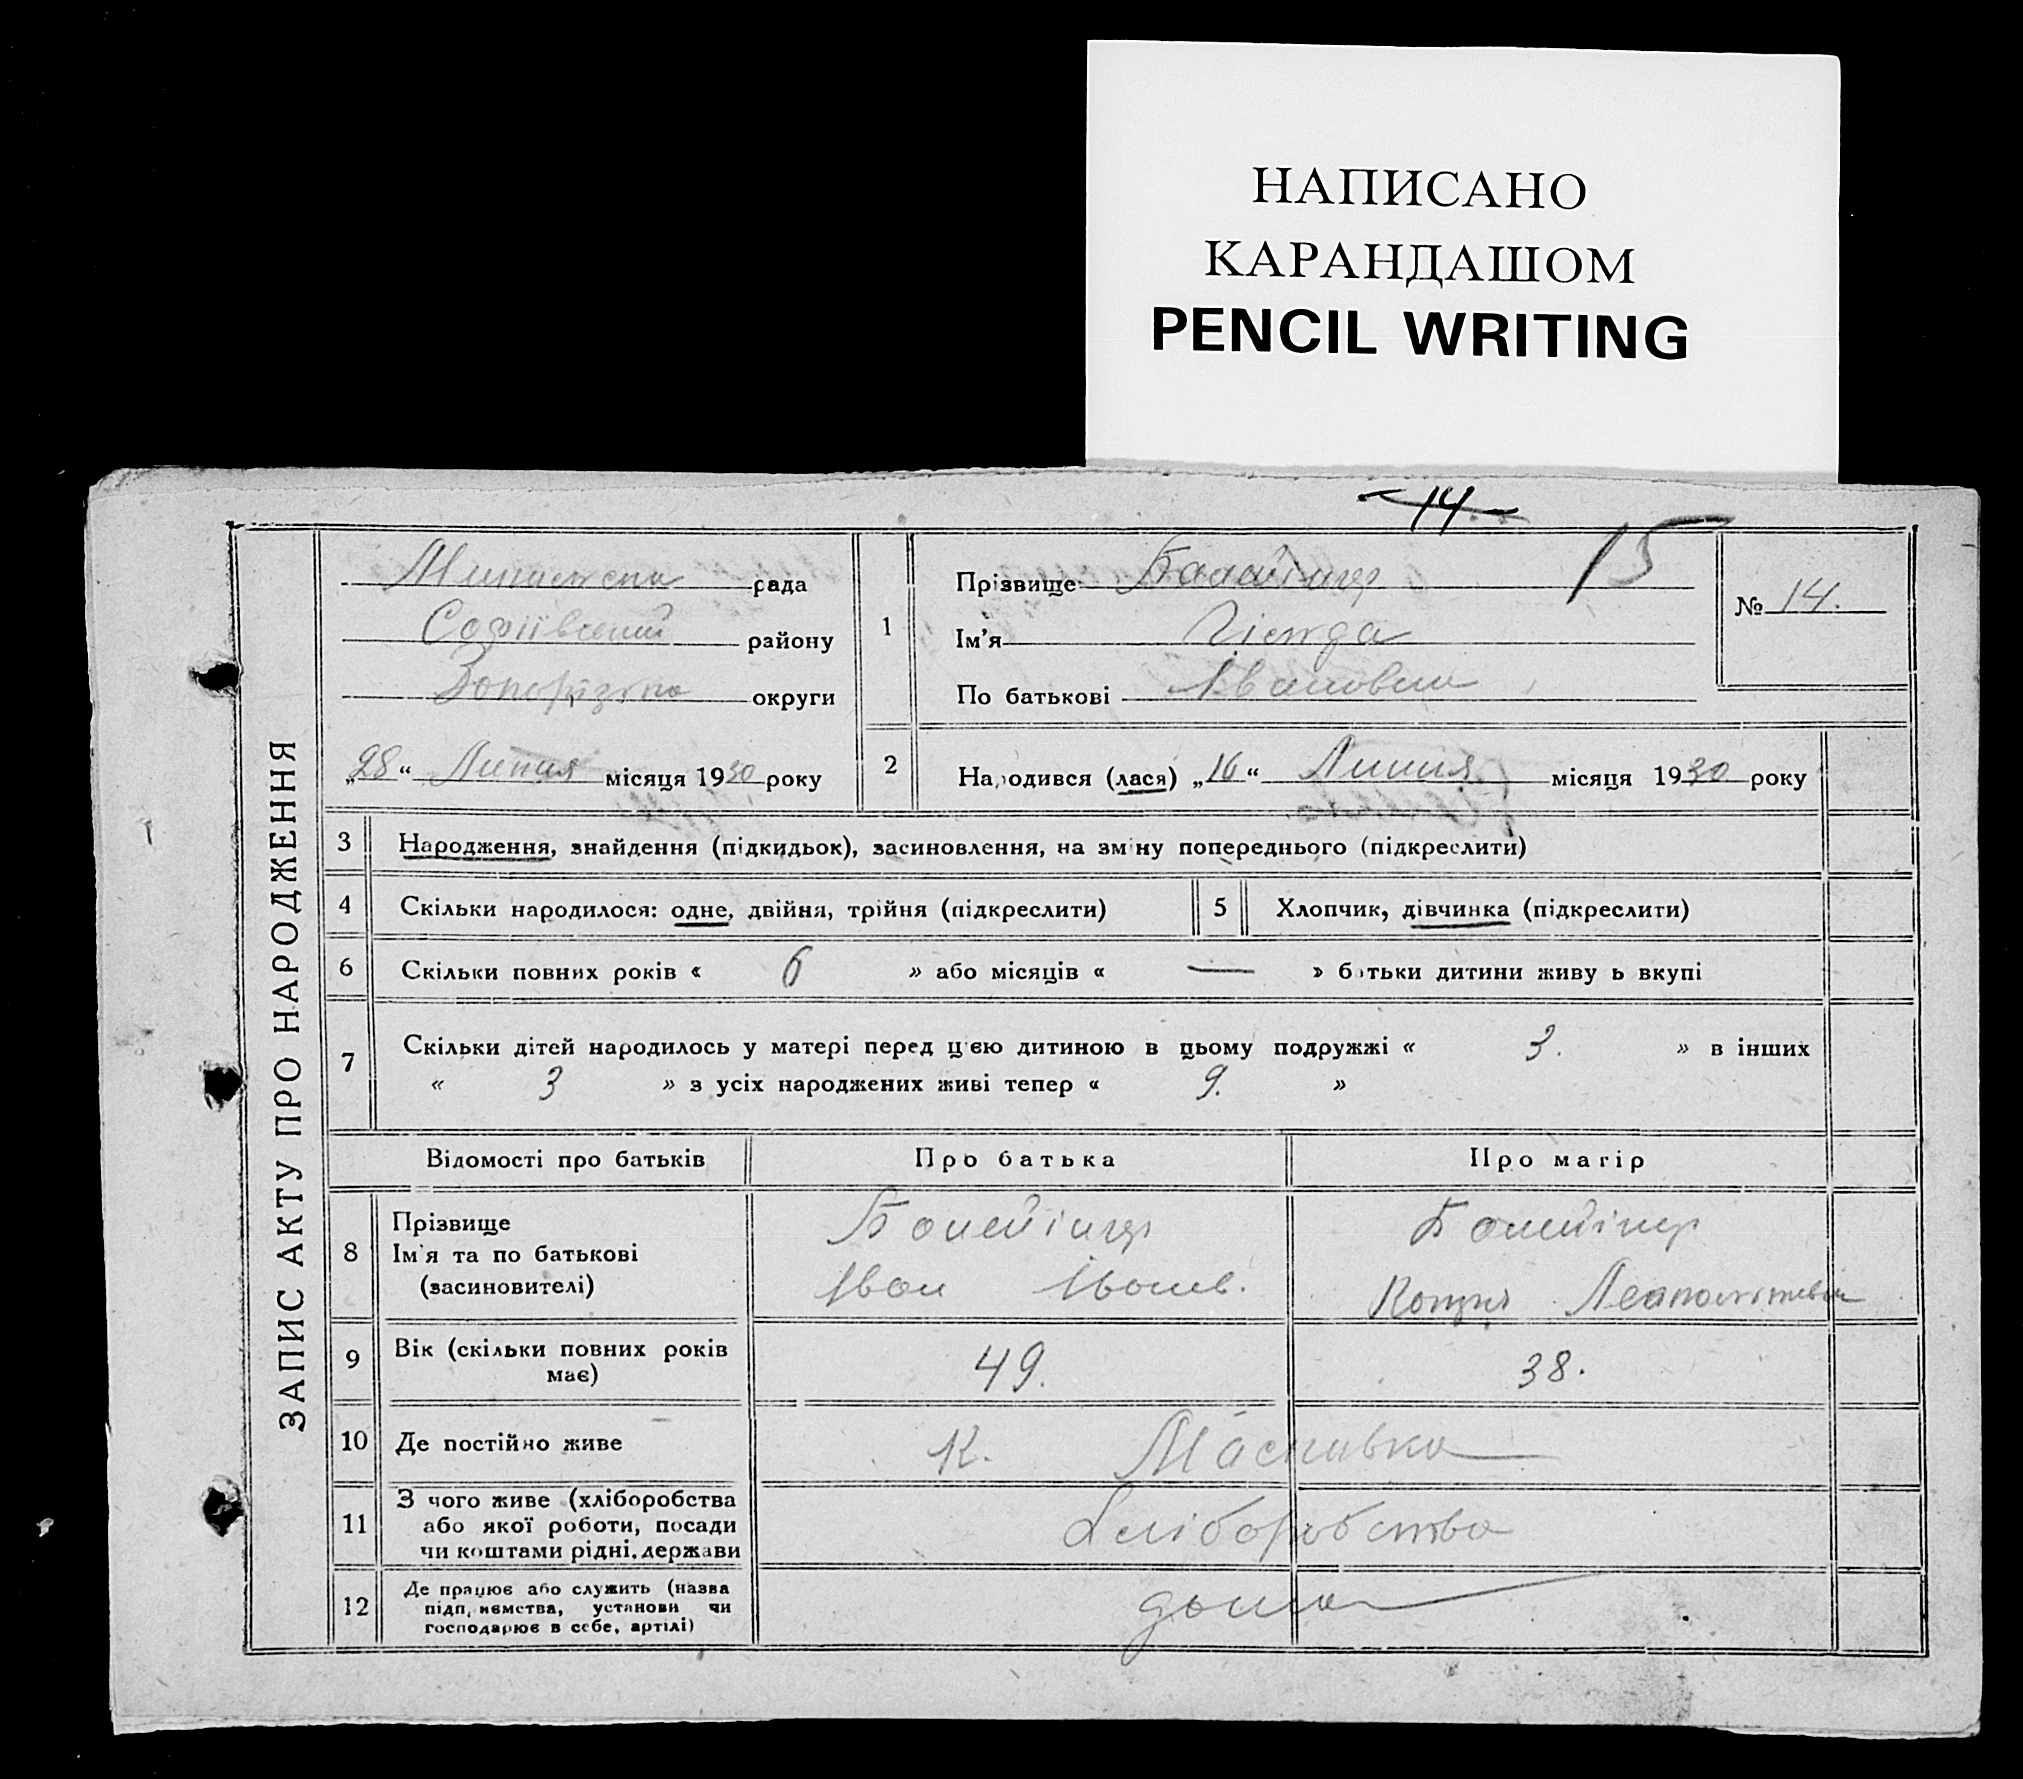 НАПИСАНО
КАРАНДАШОМ
PENCIL WRITING
14
15
ЗАПИС АКТУ ПРО НАРОДЖЕННЯ
рада
Софіївский району
Запорізька округи
„28“ Липня місяця 1930 року
1
Прізвище
Ім'я
По батькові Івановна
№ 14.
2
Народився (лася) „16“ Липня місяця 1930 року
3 Народження, знайдення (підкидьок), засиновлення, на зміну попереднього (підкреслити)
4 Скільки народилося: одне, двійня, трійня (підкреслити)
5 Хлопчик, дівчинка (підкреслити)
6 Скільки повних років « 6 » або місяців « — » батьки дитини живуть вкупі
7 Скільки дітей народилось у матері перед цією дитиною в цьому подружжі « 3. » в інших
« 3 » з усіх народжених живі тепер « 9. »
Відомості про батьків
Про батька
Про матір
8
Прізвище
Ім'я та по батькові
(засиновителі)
Іван Іванов.
9
Вік (скільки повних років
має)
49.
38.
10 Де постійно живе
К.
11
З чого живе (хліборобства
або якої роботи, посади
чи коштами рідні, держави
Хліборобство
12
Де працює або служить (назва
підприємства, установи чи
господарює в себе, артілі)
дома